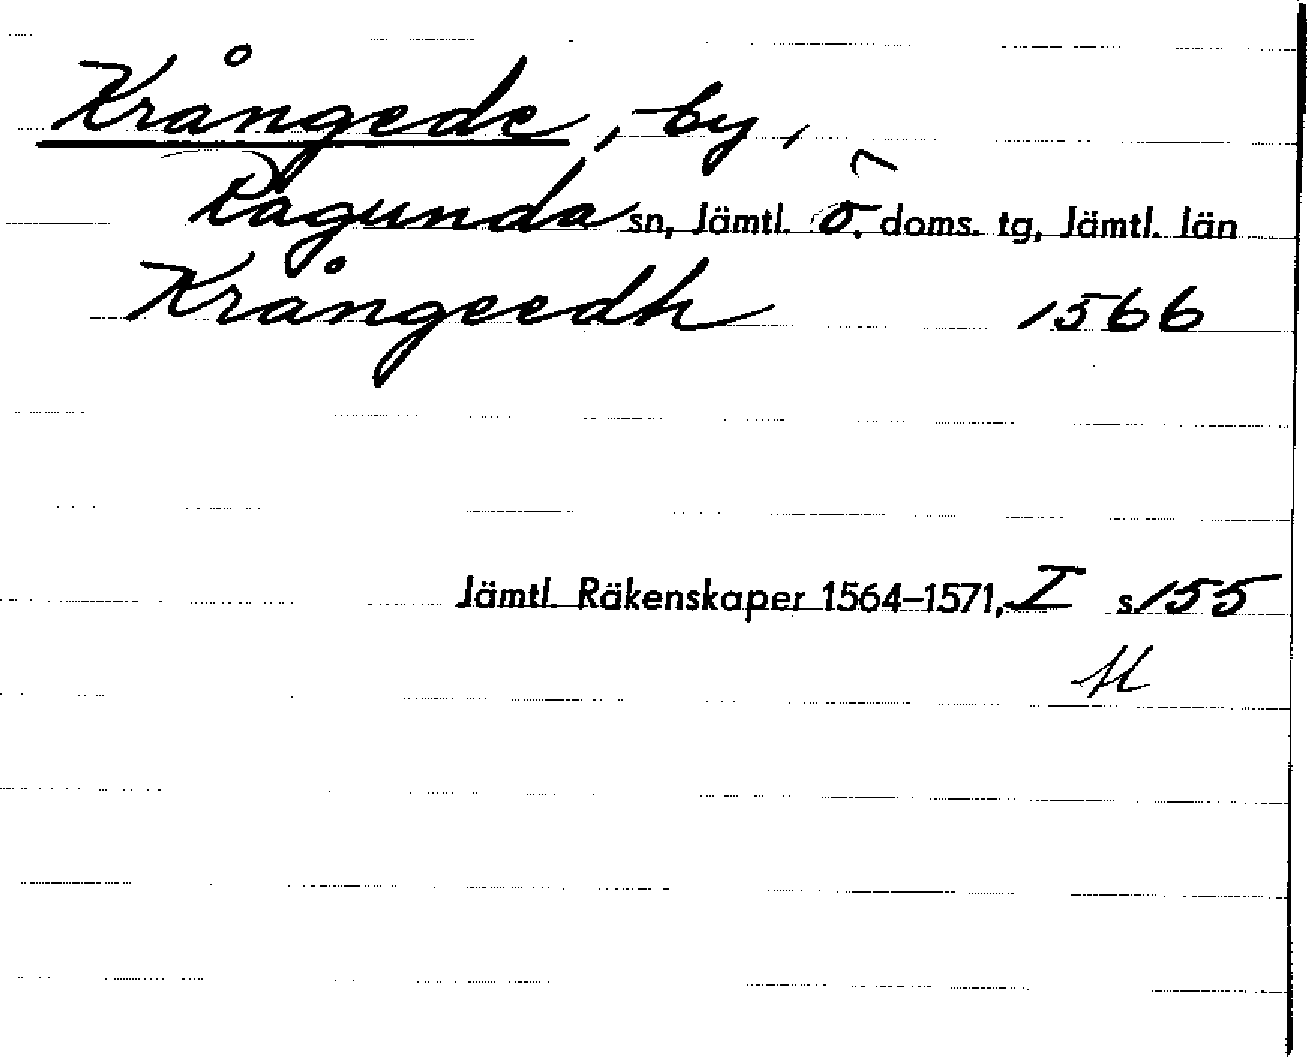 Krångede, by,
Ragunda sn, Jämtl. ö. doms. tg, Jämtl. län
Krångeedh 1566
Jämtl. Räkenskaper 1564–1571, I s. 155